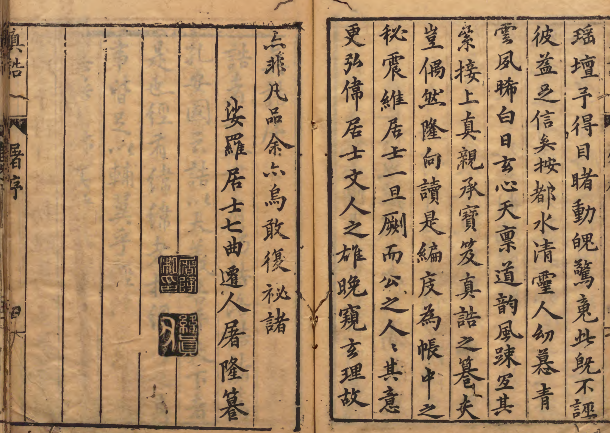 瑶壇予得目睹動魄驚䰟此既不誣
彼益足信矣按都水清靈人幼慕青
雲夙晞白日玄心天稟道韵風踈其
縈接上真親承寶笈真誥之篹夫
豈偶然隆向讀是編庋為帳中之
秘震維居士一旦劂而公之人〻其意
更弘偉居士文人之雄晚窺玄理故
亦非凡品余亦烏敢復祕諸
娑羅居士七曲僊人屠隆篹
真誥
屠序
四